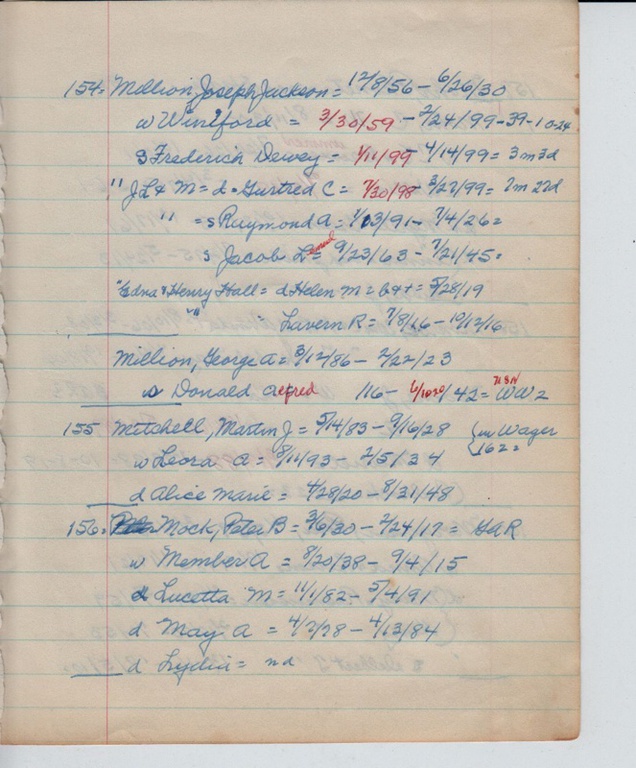 154 = Million, Joseph Jackson = 12/8/56 - 6/26/30
w Winiford = 3/30/59 - 2/24/99 - 39-10-24
s Frederich Dewey = 1/11/99 - 4/14/99 = 3m 3d
" J L & M = d = Gurtred C = 7/30/98 - 3/22/99 = 7m 22d
" = s Raymond A = 1/13/91 - 7/4/26 =
s Jacob L = 9/23/63 - 7/21/45 =
" Edna & Henry Hall = d Helen M = b & + = 5/28/19
" " Lavern R = 7/8/16 - 10/12/16
Million, George A = 3/12/86 - 2/22/23
s Donald Alfred /16 - /42 = USN WW 2
155 Mitchell, Martin J = 5/14/83 - 9/16/28 { in Wager
w Leora A = 8/11/93 - 2/5/34 162 =
d Alice Marie = 4/28/20 - 8/31/48
156 = Mock, Peter B = 3/6/30 - 2/24/17 = GAR
w Member A = 8/20/38 - 9/4/15
d Lucetta M = 11/1/82 - 5/4/91
d May A = 4/2/28 - 4/13/84
d Lydia = nd